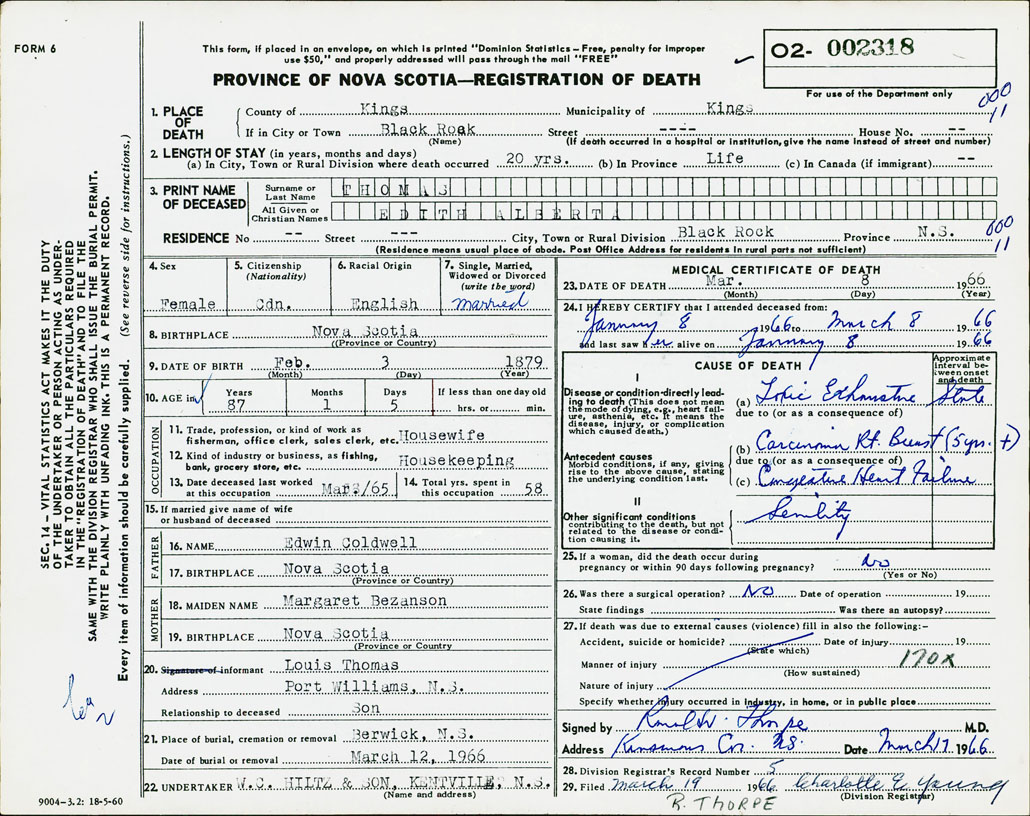 FORM 6
This form, if placed in an envelope, on which is printed "Dominion Statistics – Free, penalty for improper
use $50," and properly addressed will pass through the mail "FREE"
PROVINCE OF NOVA SCOTIA—REGISTRATION OF DEATH
O2- 002318
For use of the Department only
000
11
1. PLACE OF DEATH
County of Kings Municipality of Kings
If in City or Town Black Rock Street ---- House No. --
(Name) (If death occurred in a hospital or institution, give the name instead of street and number)
2. LENGTH OF STAY (in years, months and days)
(a) In City, Town or Rural Division where death occurred 20 yrs. (b) In Province Life (c) In Canada (if immigrant) --
3. PRINT NAME OF DECEASED
Surname or Last Name THOMAS
All Given or Christian Names EDITH ALBERTA
RESIDENCE No -- Street --- City, Town or Rural Division Black Rock Province N.S.
000
11
(Residence means usual place of abode. Post Office Address for residents in rural parts not sufficient)
4. Sex
Female
5. Citizenship
(Nationality)
Cdn.
6. Racial Origin
English
7. Single, Married,
Widowed or Divorced
(write the word)
married
8. BIRTHPLACE Nova Scotia
(Province or Country)
9. DATE OF BIRTH Feb. 3 1879
(Month) (Day) (Year)
10. AGE in
Years Months Days If less than one day old
87 1 5 hrs. or min.
OCCUPATION
11. Trade, profession, or kind of work as
fisherman, office clerk, sales clerk, etc. Housewife
12. Kind of industry or business, as fishing,
bank, grocery store, etc. Housekeeping
13. Date deceased last worked
at this occupation Mar3/65
14. Total yrs. spent in
this occupation 58
15. If married give name of wife
or husband of deceased
FATHER
16. NAME Edwin Coldwell
17. BIRTHPLACE Nova Scotia
(Province or Country)
MOTHER
18. MAIDEN NAME Margaret Bezanson
19. BIRTHPLACE Nova Scotia
(Province or Country
20. Signature of informant Louis Thomas
Address Port Williams, N.S.
Relationship to deceased Son
21. Place of burial, cremation or removal Berwick, N.S.
Date of burial or removal March 12, 1966
22. UNDERTAKER W.C. HILTZ & SON, KENTVILLE, N.S.
(Name and address)
MEDICAL CERTIFICATE OF DEATH
23. DATE OF DEATH Mar. 8 1966
(Month) (Day) (Year)
24. I HEREBY CERTIFY that I attended deceased from:
January 8 1966 to March 8 1966
and last saw her alive on January 8 1966
CAUSE OF DEATH
Approximate
interval be-
tween onset
and death
I
Disease or condition directly lead-
ing to death (This does not mean
the mode of dying, e.g., heart fail-
ure, asthenia, etc. It means the
disease, injury, or complication
which caused death.)
(a) Toxic Exhaustive State
due to (or as a consequence of)
Antecedent causes
Morbid conditions, if any, giving
rise to the above cause, stating
the underlying condition last.
(b) Carcinoma Rt. Breast (5 yrs. +)
due to (or as a consequence of)
(c) Congestive Heart Failure
II
Other significant conditions
contributing to the death, but not
related to the disease or condi-
tion causing it.
Senility
25. If a woman, did the death occur during
pregnancy or within 90 days following pregnancy? No
(Yes or No)
26. Was there a surgical operation? No Date of operation 19
State findings Was there an autopsy?
27. If death was due to external causes (violence) fill in also the following:-
Accident, suicide or homicide? Date of injury 19
(State which)
Manner of injury 170X
(How sustained)
Nature of injury
Specify whether injury occurred in industry, in home, or in public place
Signed by Ronald W. Thorpe M.D.
Address Kinsmans Cor. N.S. Date March 17 1966
28. Division Registrar's Record Number 5
29. Filed March 19 1966 Charlotte E Young
(Division Registrar)
R. THORPE
SEC. 14 – VITAL STATISTICS ACT MAKES IT THE DUTY
OF THE UNDERTAKER OR PERSON ACTING AS UNDER-
TAKER TO OBTAIN ALL THE PARTICULARS REQUIRED
IN THE "REGISTRATION OF DEATH" AND TO FILE THE
SAME WITH THE DIVISION REGISTRAR WHO SHALL ISSUE THE BURIAL PERMIT.
WRITE PLAINLY WITH UNFADING INK. THIS IS A PERMANENT RECORD.
Every item of information should be carefully supplied. (See reverse side for instructions.)
9004-3.2: 18-5-60